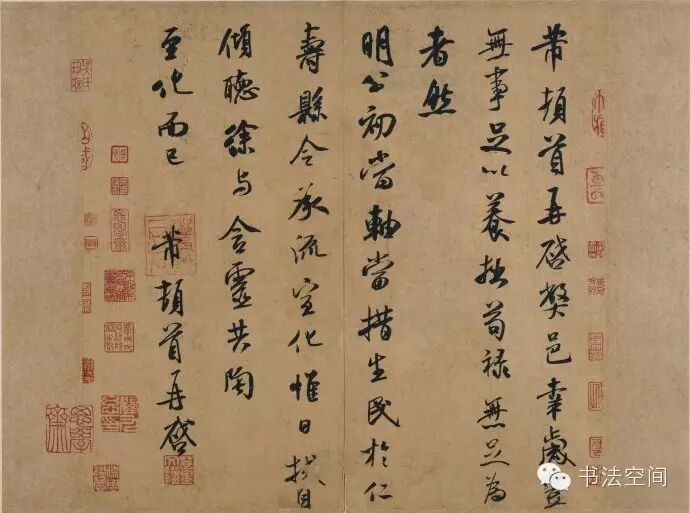 芾頓首再啓弊邑幸歲豊
無事足以養拙苟祿無足為
者然
明公初當軸當措生民於仁
壽縣令承流宣化惟日拭目
傾聽徐与含靈共陶
至化而已
芾頓首再啓
书法空间